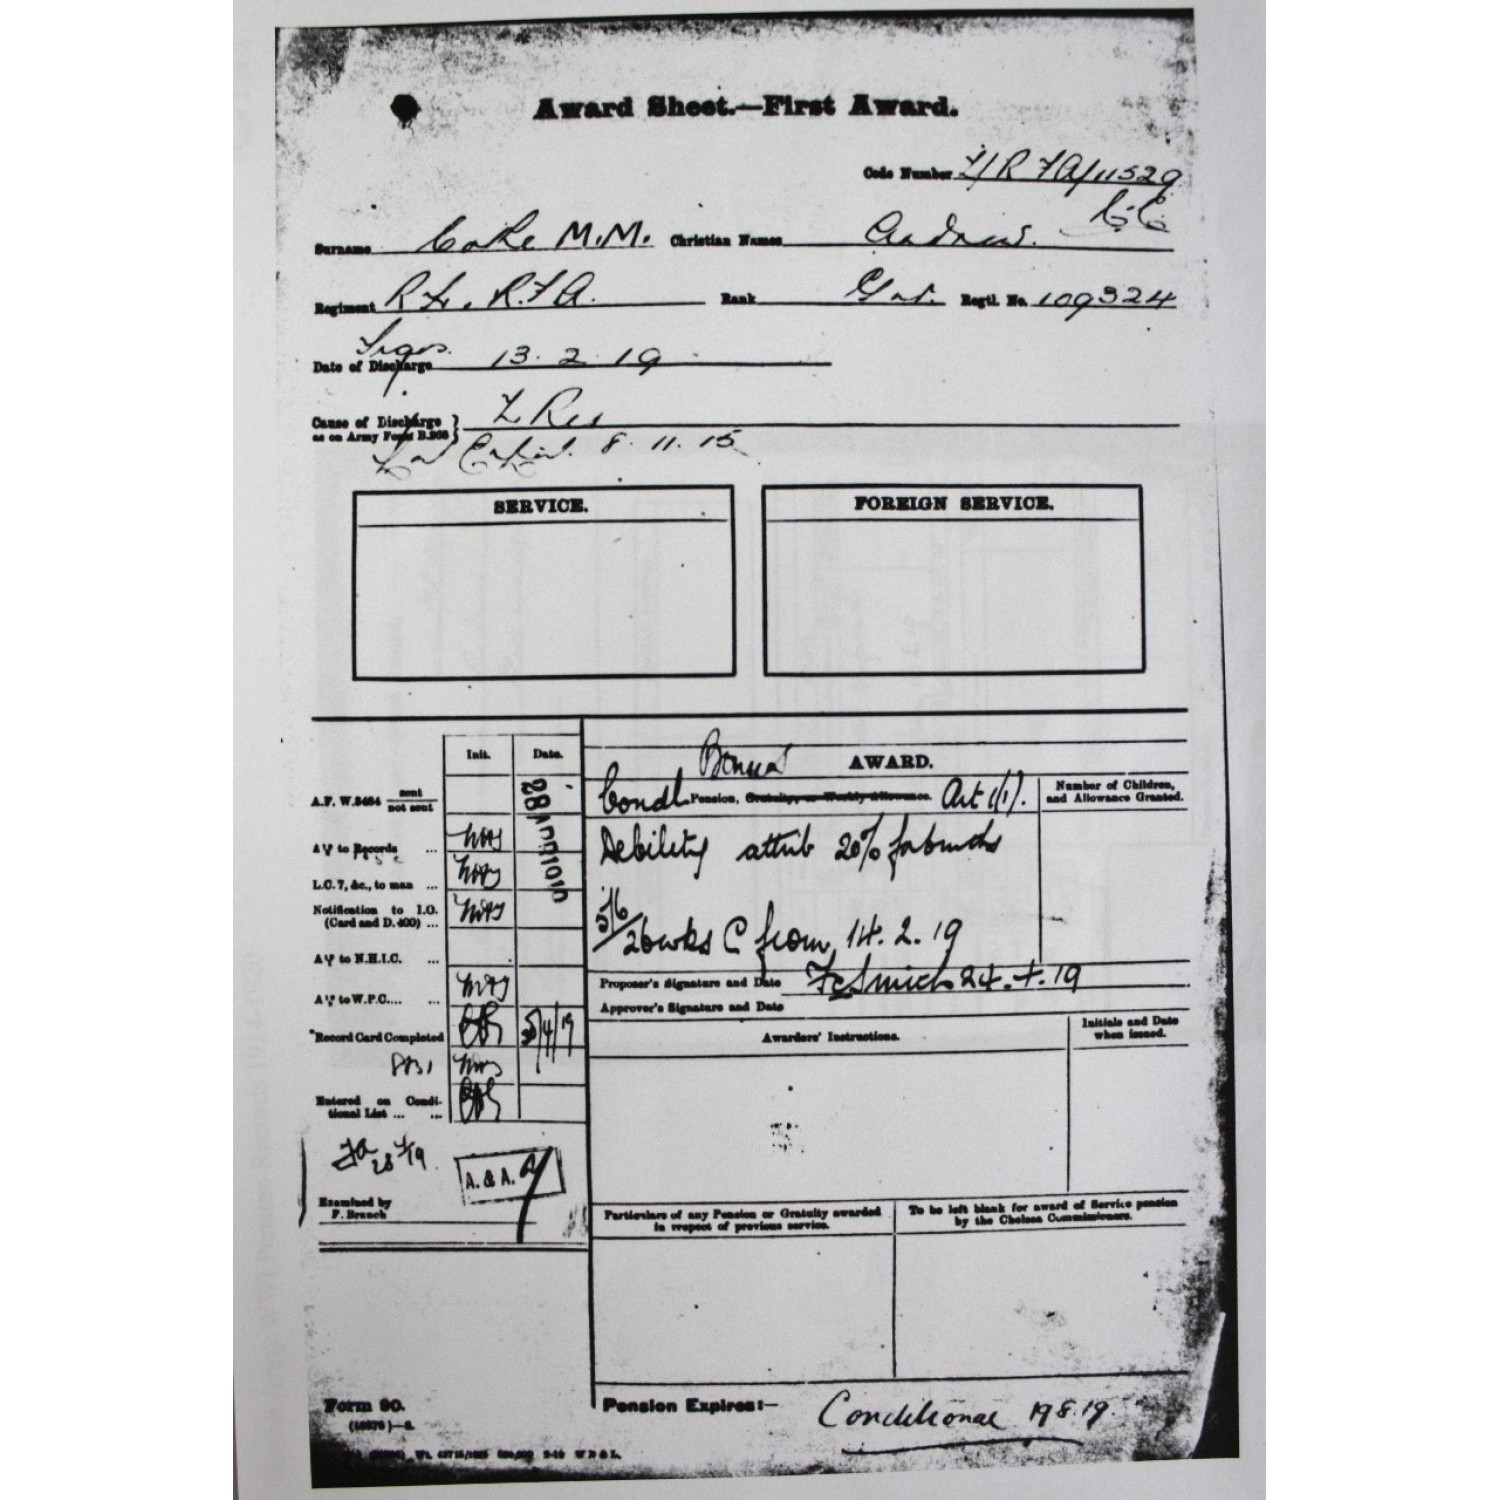 Award Sheet.—First Award.
Code Number 1/RFA/11529
Surname Cake M.M. Christian Names Andrew.
Regiment R.F.A. Rank Regtl. No. 109324
Date of Discharge 13. 2. 19
Cause of Discharge Z Res
as on Army Form B.268
8. 11. 15
SERVICE.
FOREIGN SERVICE.
Init. Date.
Bonus AWARD.
A.F. W.3464 sent
not sent
28 APR 1919
Condl Pension, Gratuity, or Weekly Allowance. Art 1(1).
Number of Children,
and Allowance Granted.
to Records ...
Debility attrib 20%
L.C. 7, &c., to man ...
Notification to I.O.
(Card and D.400) ...
5/6
26wks C from 14. 2. 19
to N.H.I.C. ...
Proposer's Signature and Date 24.4.19
to W.P.C.... ...
Approver's Signature and Date
*Record Card Completed /4/19
Awarders' Instructions.
Initials and Date
when issued.
Entered on Condi-
tional List ... ...
28/4/19
A. & A.
Examined by
P. Branch
Particulars of any Pension or Gratuity awarded
in respect of previous service.
To be left blank for award of Service pension
by the Chelsea Commissioners.
Form 90.
Pension Expires:— Conditional 19.8.19.